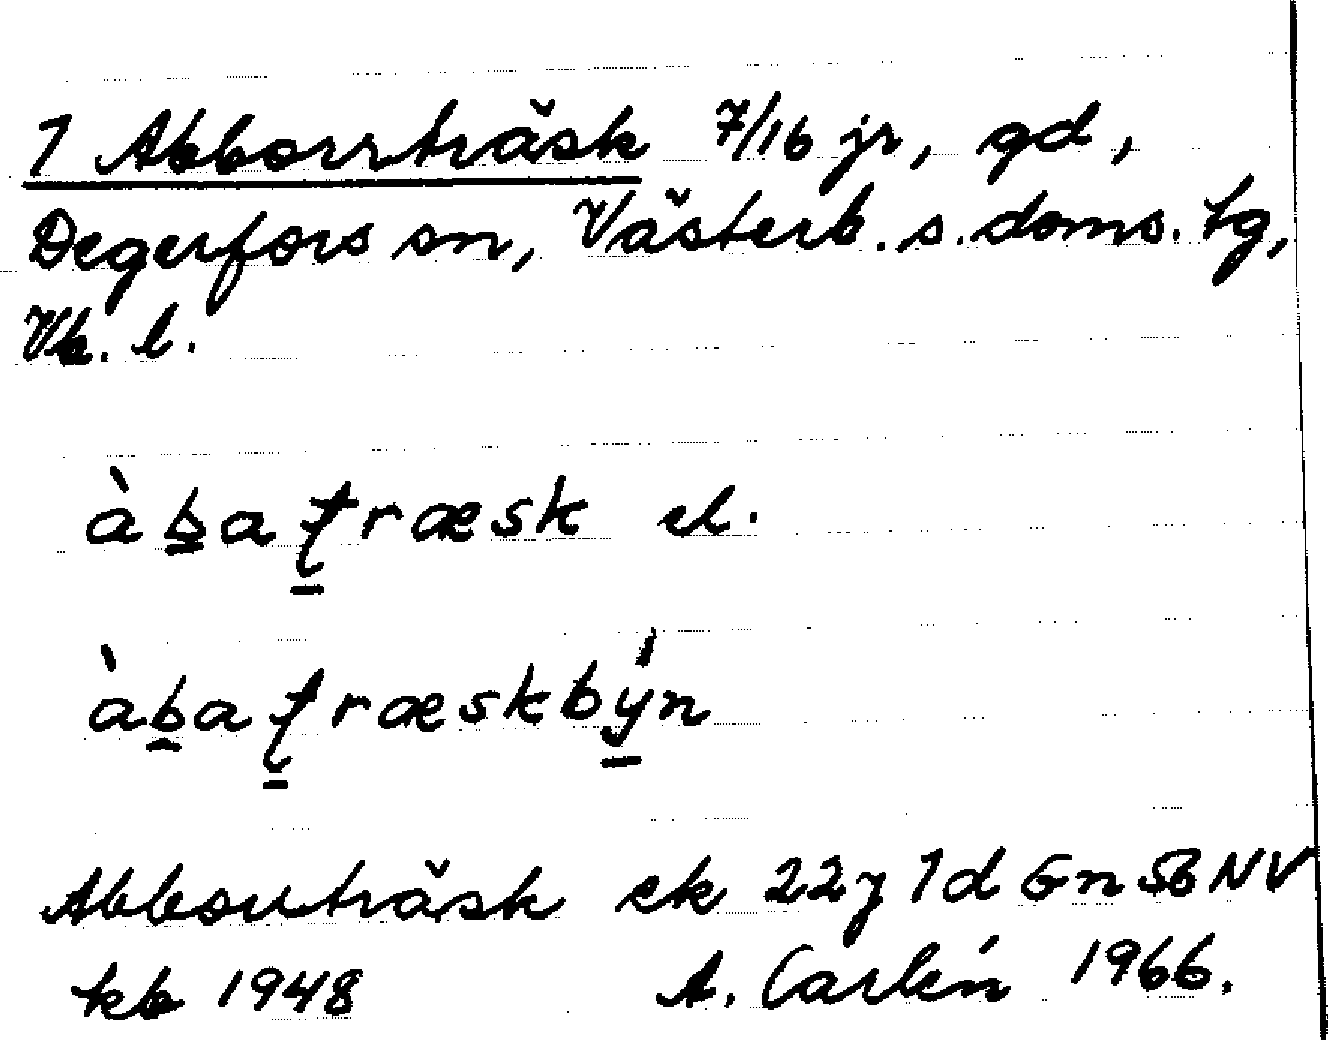 1 Abborrträsk 7/16 jr, gd,
Degerfors sn, Västerb. s. doms. tg,
Vb. l.
àb̲aṱræsk el.
àbaṱræskbýn
Abborrträsk ek 22 J 1d Gn SB NV
kb 1948 A. Carlén 1966.